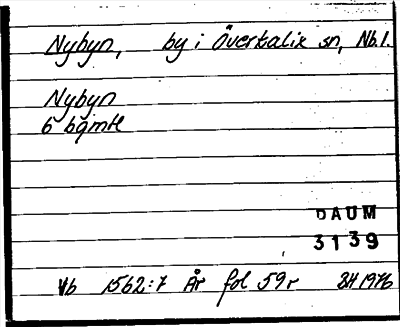 Nybyn, by i Överkalix sn, Nb.l.
Nybyn
6 bgmtl
DAUM
3139
Vb 1562:7 År fol 59r BH 1976